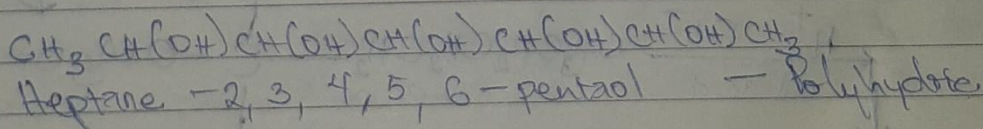 CH₃ CH(OH) CH(OH) CH(OH) CH(OH) CH(OH) CH₃.
Heptane -2, 3, 4, 5, 6 - pentaol - Polyhydote.